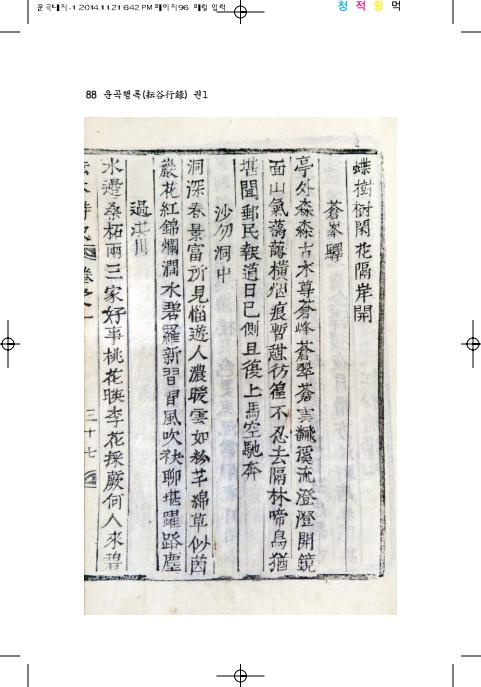 운곡내지-1 2014.11.21 6:42 PM 페이지96 매월 입력
청 적 황 먹
88 운곡행록(耘谷行錄) 권1
蝶樹樹閑花隔岸開
蒼峯驛
亭外森森古木尊蒼峰蒼翠蒼雲飜溪流澄澄開鏡
面山氣藹藹橫烟痕暫憇彷徨不忍去隔林啼鳥猶
堪聞郵民報道日已側且復上馬空馳奔
沙勿洞中
洞深春景富所見惱遊人濃暖雲如粉芊綿草似茵
巖花紅錦爛澗水碧羅新習習風吹袂聊堪躍路塵
過洪川
水邊桑柘兩三家好事桃花暎李花採蕨何人來碧
卷之一
三十七